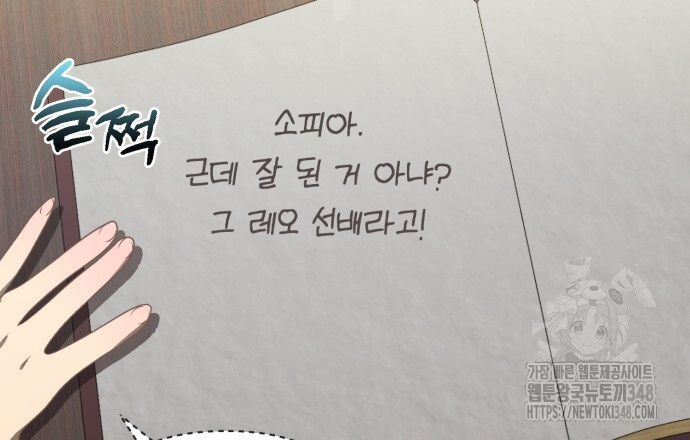 슬쩍
소피아.
근데 잘 된 거 아냐?
그 레오 선배라고!
가장 빠른 웹툰제공사이트
웹툰왕국뉴토끼348
HTTPS://NEWTOKI348.COM